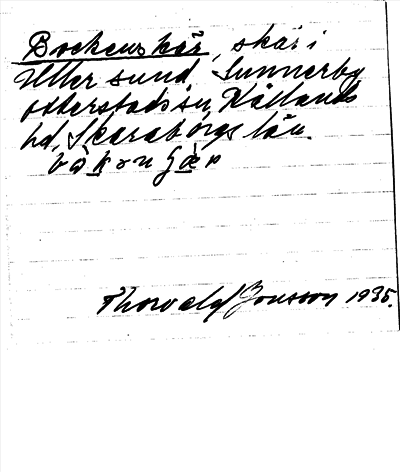 Bockenskär, skär i
Ullersund, Sunnerby
Otterstads sn, Kållands
hd, Skaraborgs län.
Thorvald Jonsson 1935.